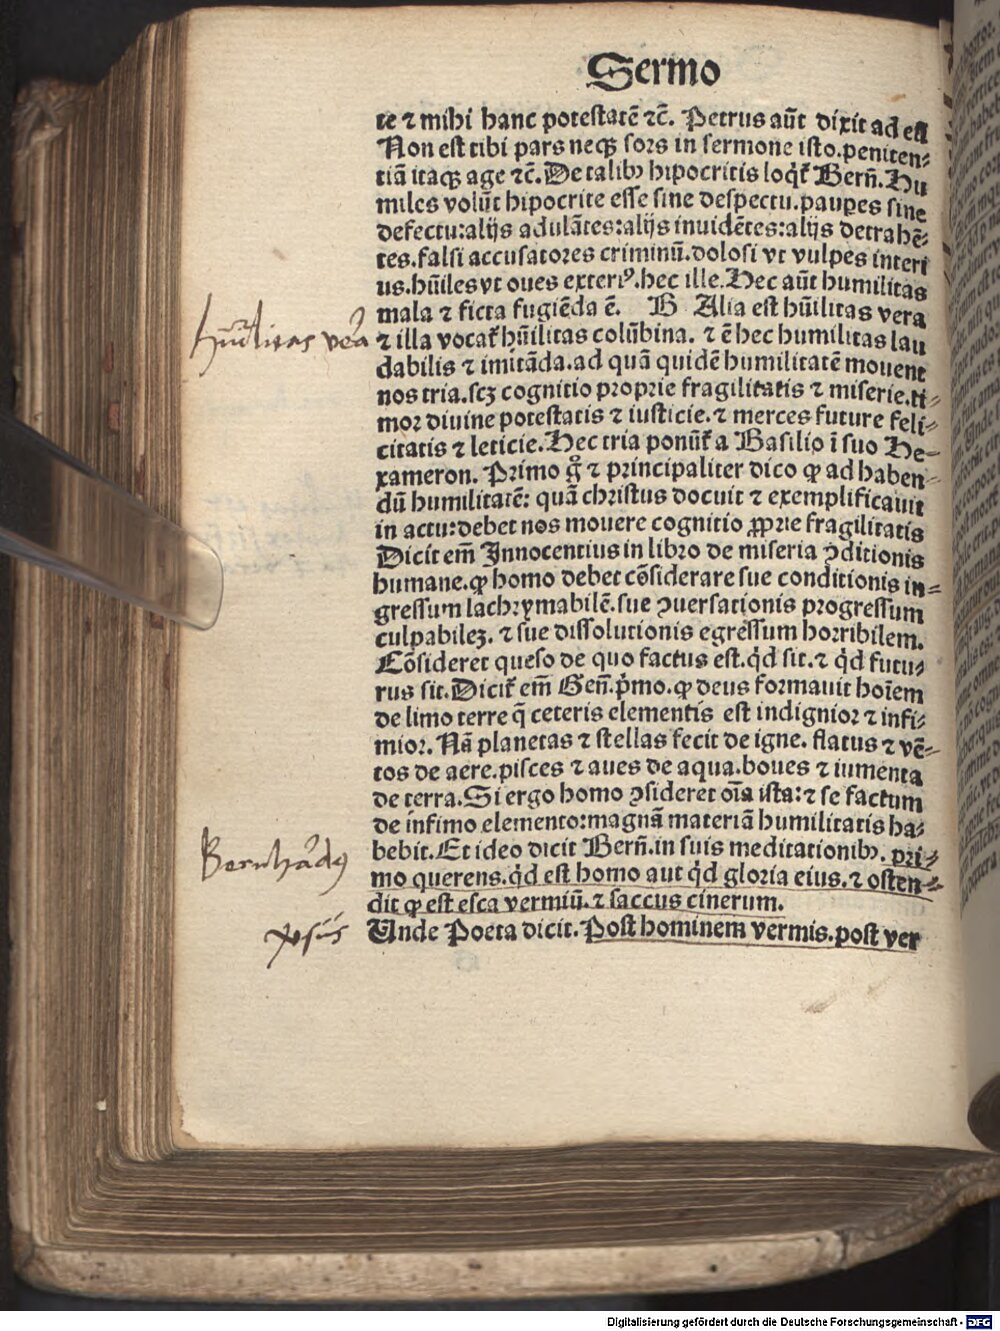 Sermo
te ⁊ mihi hanc potestatē ⁊c̄. Petrus aūt dixit ad eū
Non est tibi pars neqꝫ sors in sermone isto.peniten⸗
tiā itaqꝫ age ⁊c̄. De talibꝰ hipocritis loqt̄ Bern̄. Hu
miles volūt hipocrite esse sine despectu.paupes sine
defectu:alijs adulātes:alijs inuidētes:alijs detrahē⸗
tes.falsi accusatores criminū.dolosi vt vulpes interi
us.hūiles vt oues exteriꝰ.hec ille. Hec aūt humilitas
mala ⁊ ficta fugiēda ē. B Alia est hūilitas vera
hūilitas vēa
⁊ illa vocat̄ hūilitas colūbina. ⁊ ē hec humilitas lau
dabilis ⁊ imitāda.ad quā quidē humilitatē mouent
nos tria.scꝫ cognitio proprie fragilitatis ⁊ miserie.ti⸗
mor diuine potestatis ⁊ iusticie.⁊ merces future feli⸗
citatis ⁊ leticie. Hec tria ponūt̄ a Basilio ī suo He⸗
xameron. Primo gͦ ⁊ principaliter dico ꝙ ad haben⸗
dū humilitatē: quā christus docuit ⁊ exemplificauit
in actu:debet nos mouere cognitio ꝓprie fragilitatis
Dicit em̄ Innocentius in libro de miseria ꝯditionis
humane.ꝙ homo debet cōsiderare sue conditionis in⸗
gressum lachrymabilē.sue ꝯuersationis progressum
culpabileꝫ. ⁊ sue dissolutionis egressum horribilem.
Cōsideret queso de quo factus est.qd sit.⁊ qd futu⸗
rus sit. Dicit̄ em̄ Gen̄.pmo.ꝙ deus formauit hoīem
de limo terre q̄ ceteris elementis est indignior ⁊ infi⸗
mior. Nā planetas ⁊ stellas fecit de igne. flatus ⁊ vē⸗
tos de aere.pisces ⁊ aues de aqua.boues ⁊ iumenta
de terra. Si ergo homo ꝯsideret oīa ista:⁊ se factum
de infimo elemento:magnā materiā humilitatis ha⸗
Bernhardꝰ
bebit. Et ideo dicit Bern̄.in suis meditationibꝰ. pri⸗
mo querens.qd est homo aut qd gloria eius.⁊ osten⸗
dit ꝙ est esca vermiū.⁊ saccus cinerum.
Unde Poeta dicit. Post hominem vermis.post ver
Digitalisierung gefördert durch die Deutsche Forschungsgemeinschaft - DFG